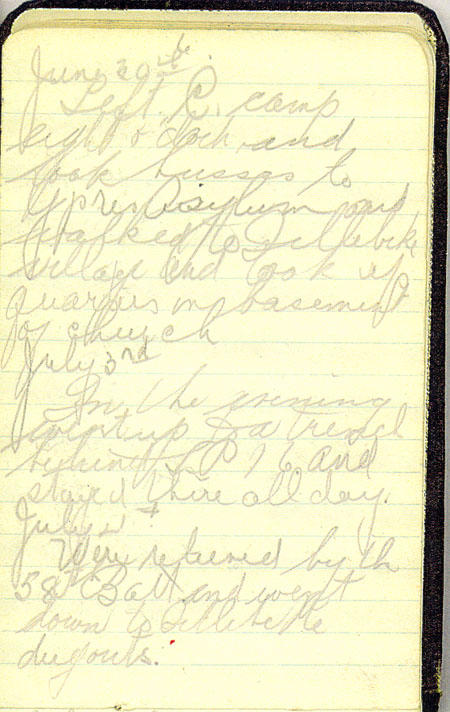 June 29th
Left C. camp
eight o cloch and
took busses to
Ypres Asylum and
walked to Zillebeke
village and took up
quarters in basement
of church
July 3rd
In the evening
went up to a trench
behind S P 16 and
stayed there all day.
July 4th
Were relieved by th
58th Batt and went
down to Zillebeke
dugouts.